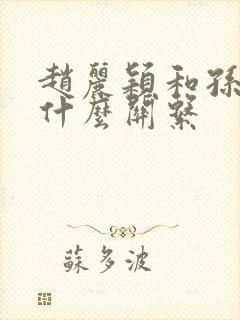 趙麗穎和孫
什麼關繫
蘇多波